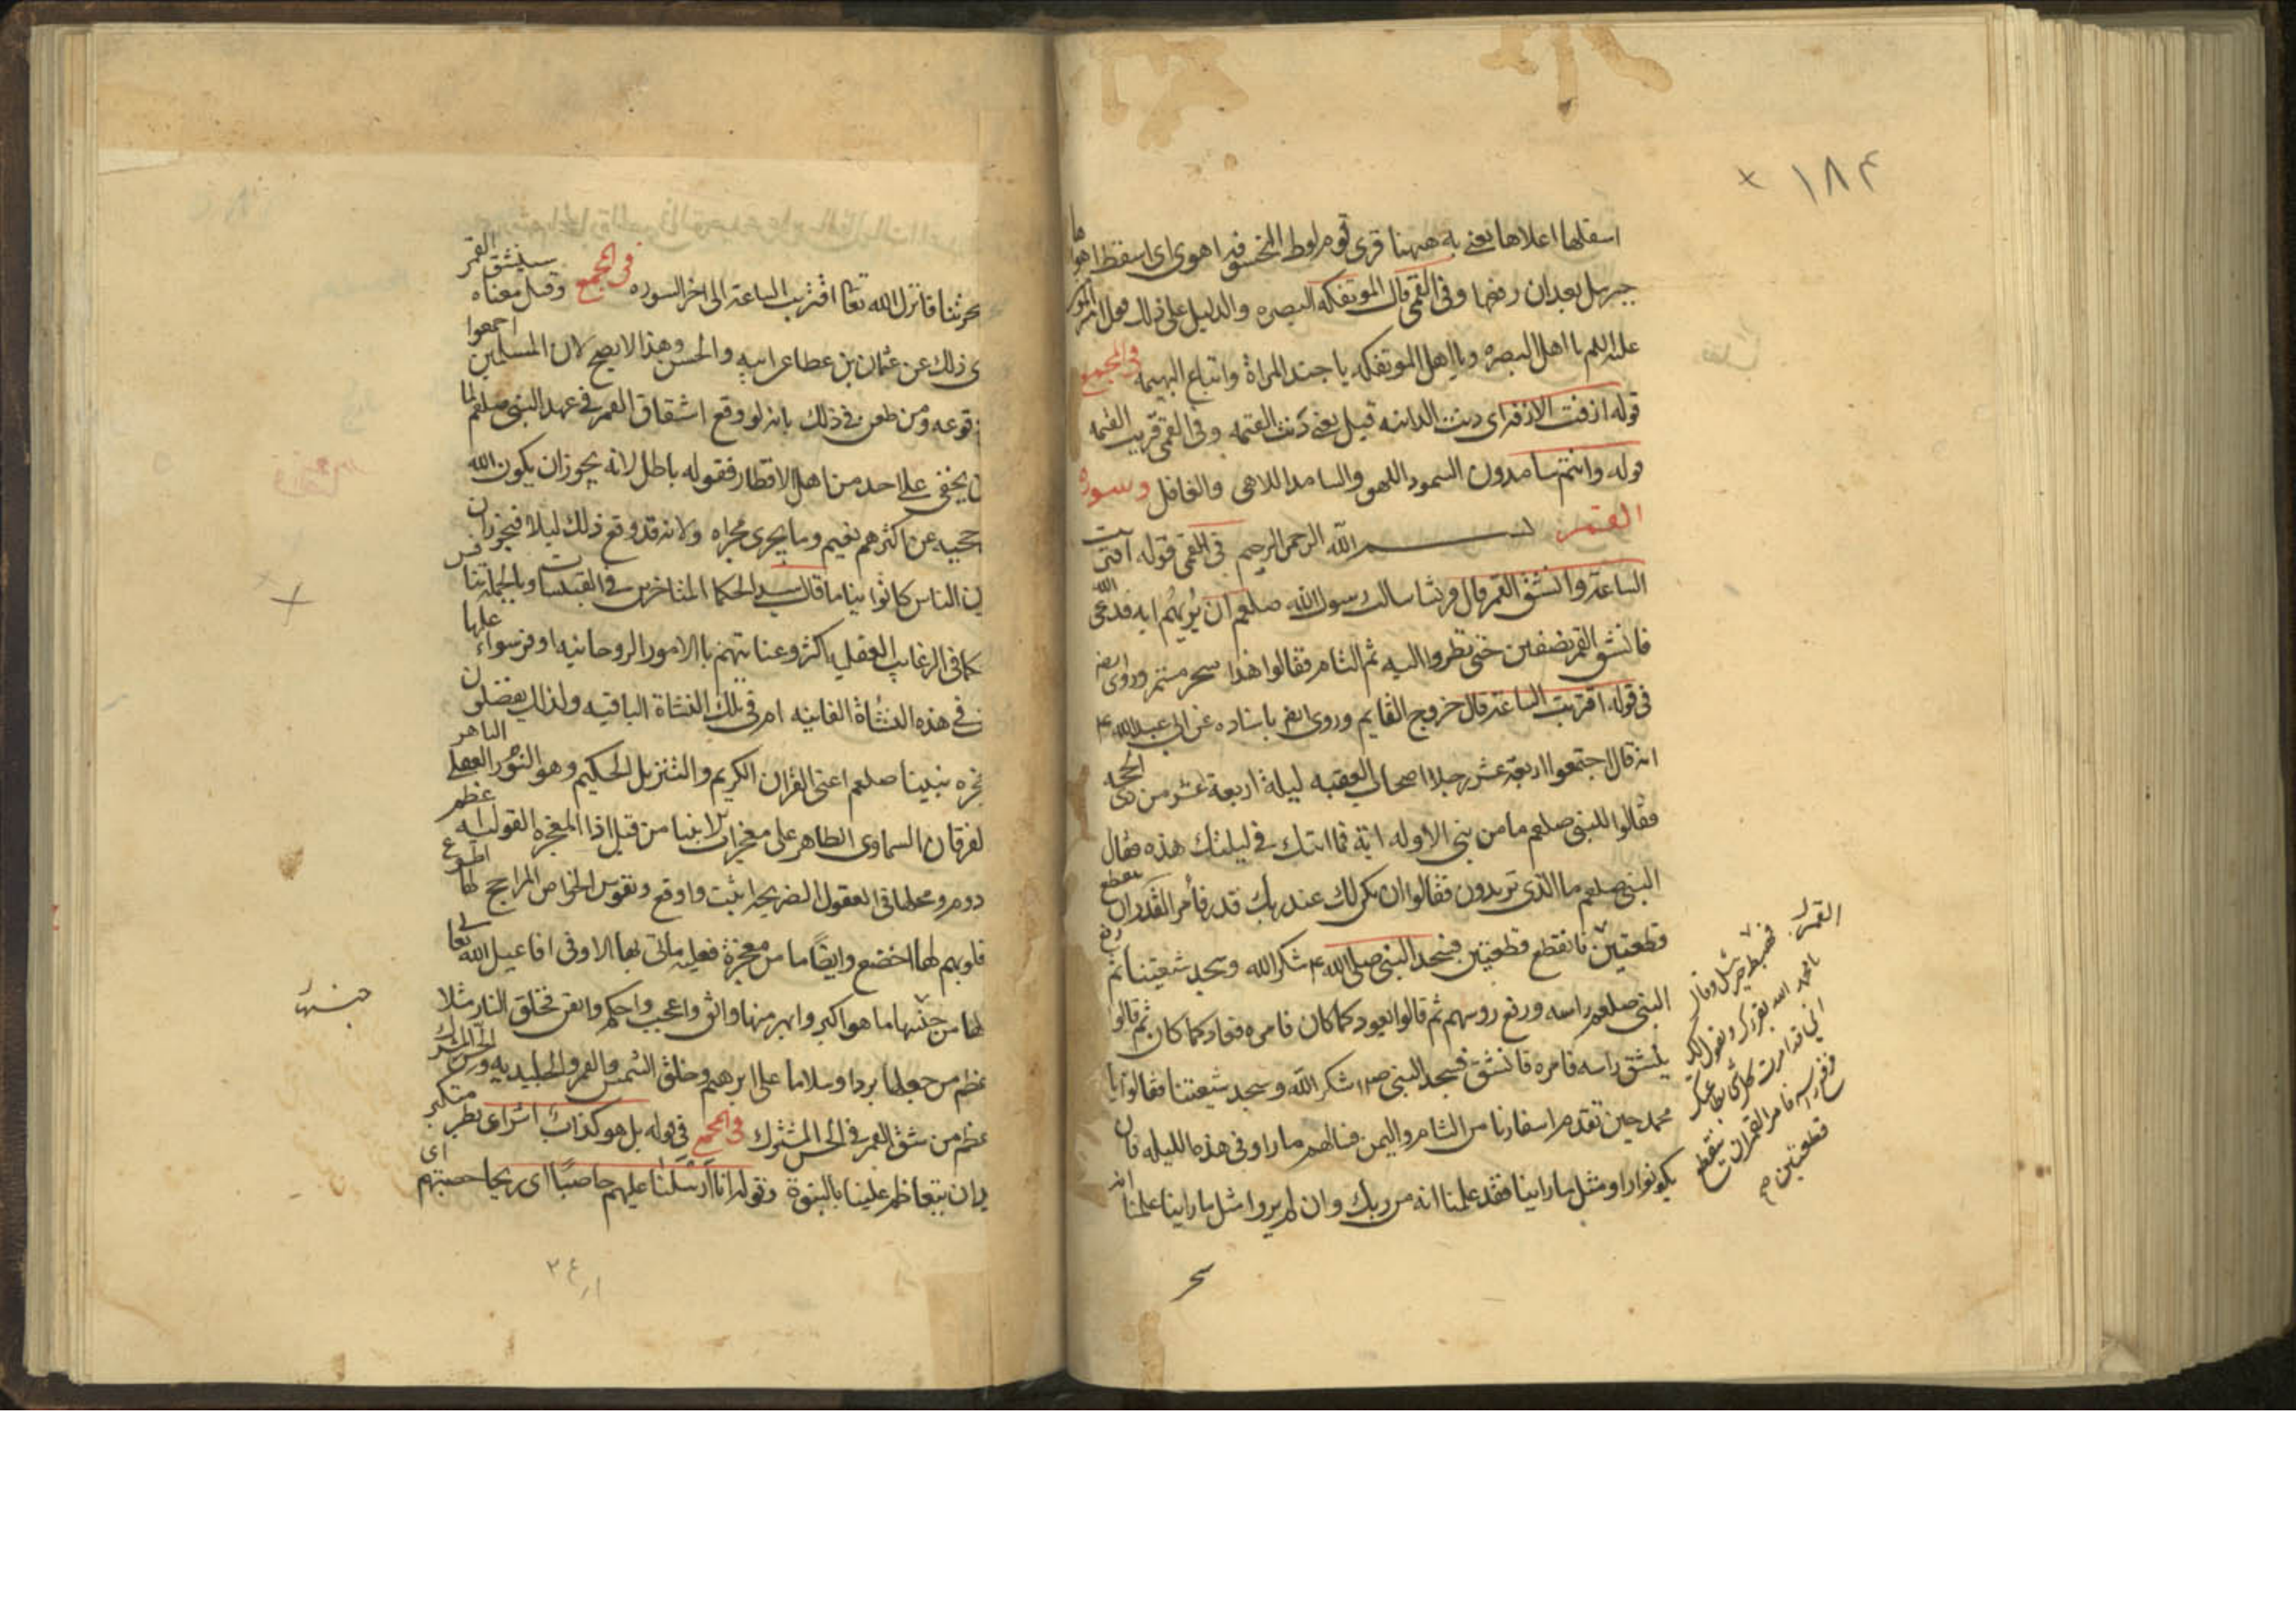 ١٨٤
اسفلها اعلاها يعنى به ههنا قرى قوم لوط المخسوفه اهوى اى اسقط اهواها
جبرئيل بعد ان رفعها وفى القمى قال الموتفكه البصره والدليل على ذلك قول امير المؤ
عليه السلم يا اهل البصرة ويا اهل الموتفكه يا جند المراة واتباع البهيمه فى المجمع
قوله ازفت الازفه اى دنت الدانيه قيل يعنى دنت القيمه وفى القمى قربت القيمه
قوله وانتم سامدون السمود اللهو والسامد اللاهى والغافل وسورة
القمر بسم الله الرحمن الرحيم فى القمى قوله اقتربت
الساعة وانشق القمر قال قريشا سالت رسول الله صلعم ان يريهم ايه فدعى الله
فانشق القمر نصفين حتى نظروا اليه ثم التام فقالوا هذا سحر مستمر وروى ايضا
فى قوله اقتربت الساعة قال خروج القايم وروى ايضا باسناده عن ابى عبد الله ع
انه قال اجتمعوا اربعة عشر رجلا اصحاب العقبه ليلة اربعة عشر من ذى الحجه
فقالوا للنبى صلعم ما من نبى الا وله اية فما ايتك فى ليلتك هذه فقال
النبى صلعم ما الذى تريدون فقالوا ان يكن لك عند ربك قدر فأمر القمر ان ينقطع
قطعتين فانقطع قطعتين فسجد النبى صلى الله ع شكر الله وسجد شيعتنا ثم رفع
النبى صلعم راسه ورفع روسهم ثم قالوا يعود كما كان فامره فعاد كما كان ثم قالوا
ينشق راسه فامره فانشق فسجد النبى ص شكر الله وسجد شيعتنا فقالوا يا
محمد حين تقدم اسفارنا من الشام واليمن فسالهم ما راو فى هذه الليله فان
يكونوا راو مثل ما راينا فقد علمنا انه من ربك وان لم يروا مثل ما راينا علمنا انه
سحر
فهبط جبرئيل وقال
يا محمد الله يقرئك ويقول لك
انى قد امرت كل شئ بطاعتك
فرفع راسه فامر القمر ان ينقطع
قطعتين
سحرتنا فانزل الله تعا اقتربت الساعة الى اخر السوره فى المجمع وقيل معناه سينشق القمر
ى ذلك عن عثمان بن عطا عن ابيه والحسن وهذا لا يصح لان المسلمين اجمعوا
وقوعه ومن طعن فى ذلك بانه لو وقع انشقاق القمر فى عهد النبى صلعم لما
ن يخفى على احد من اهل الاقطار فقوله باطل لانه يجوز ان يكون الله
حجبه عن اكثرهم بغيم وما يجرى مجراه ولانه قد وقع ذلك ليلا فيجوز ان
ين الناس كانوا نياما قال سيد الحكما المتاخرين فى القبسات وبالجملة تنافس
كما فى الرغايب العقليه اكثر وعنايتهم بالامور الروحانيه اوفر سواء عليها
فى هذه النشاة الفانيه ام فى تلك النشاة الباقيه ولذلك يفضلون
جزه نبينا صلعم اعنى القران الكريم والتنزيل الحكيم وهو النور العقلى الباهر
لفرقان السماوى الظاهر على معجزات الانبيا من قبل اذا المعجزه القوليه اعظم
دوم ومحلها فى العقول الصريحه اثبت واوقع ونفوس الخواص المراجح لها اطوع
قلوبهم لها اخضع وايضا ما من معجزة فعليه ماتى بها الا وفى افاعيل الله تعالى
لها من جنبها ما هو اكبر وابهر منها واثق واعجب واحكم واتقن فخلق النار مثلا
عظم من جعلها بردا وسلاما على ابرهيم وخلق الشمس والقمر والجليديه والحس المشترك
عظم من شق القمر فى الحس المشترك فى المجمع فى قوله بل هو كذاب اشر اى بطر متكبر
يران يتعاظم علينا بالنبوة وقوله انا ارسلنا عليهم حاصبا اى ريحا حصبتهم اى